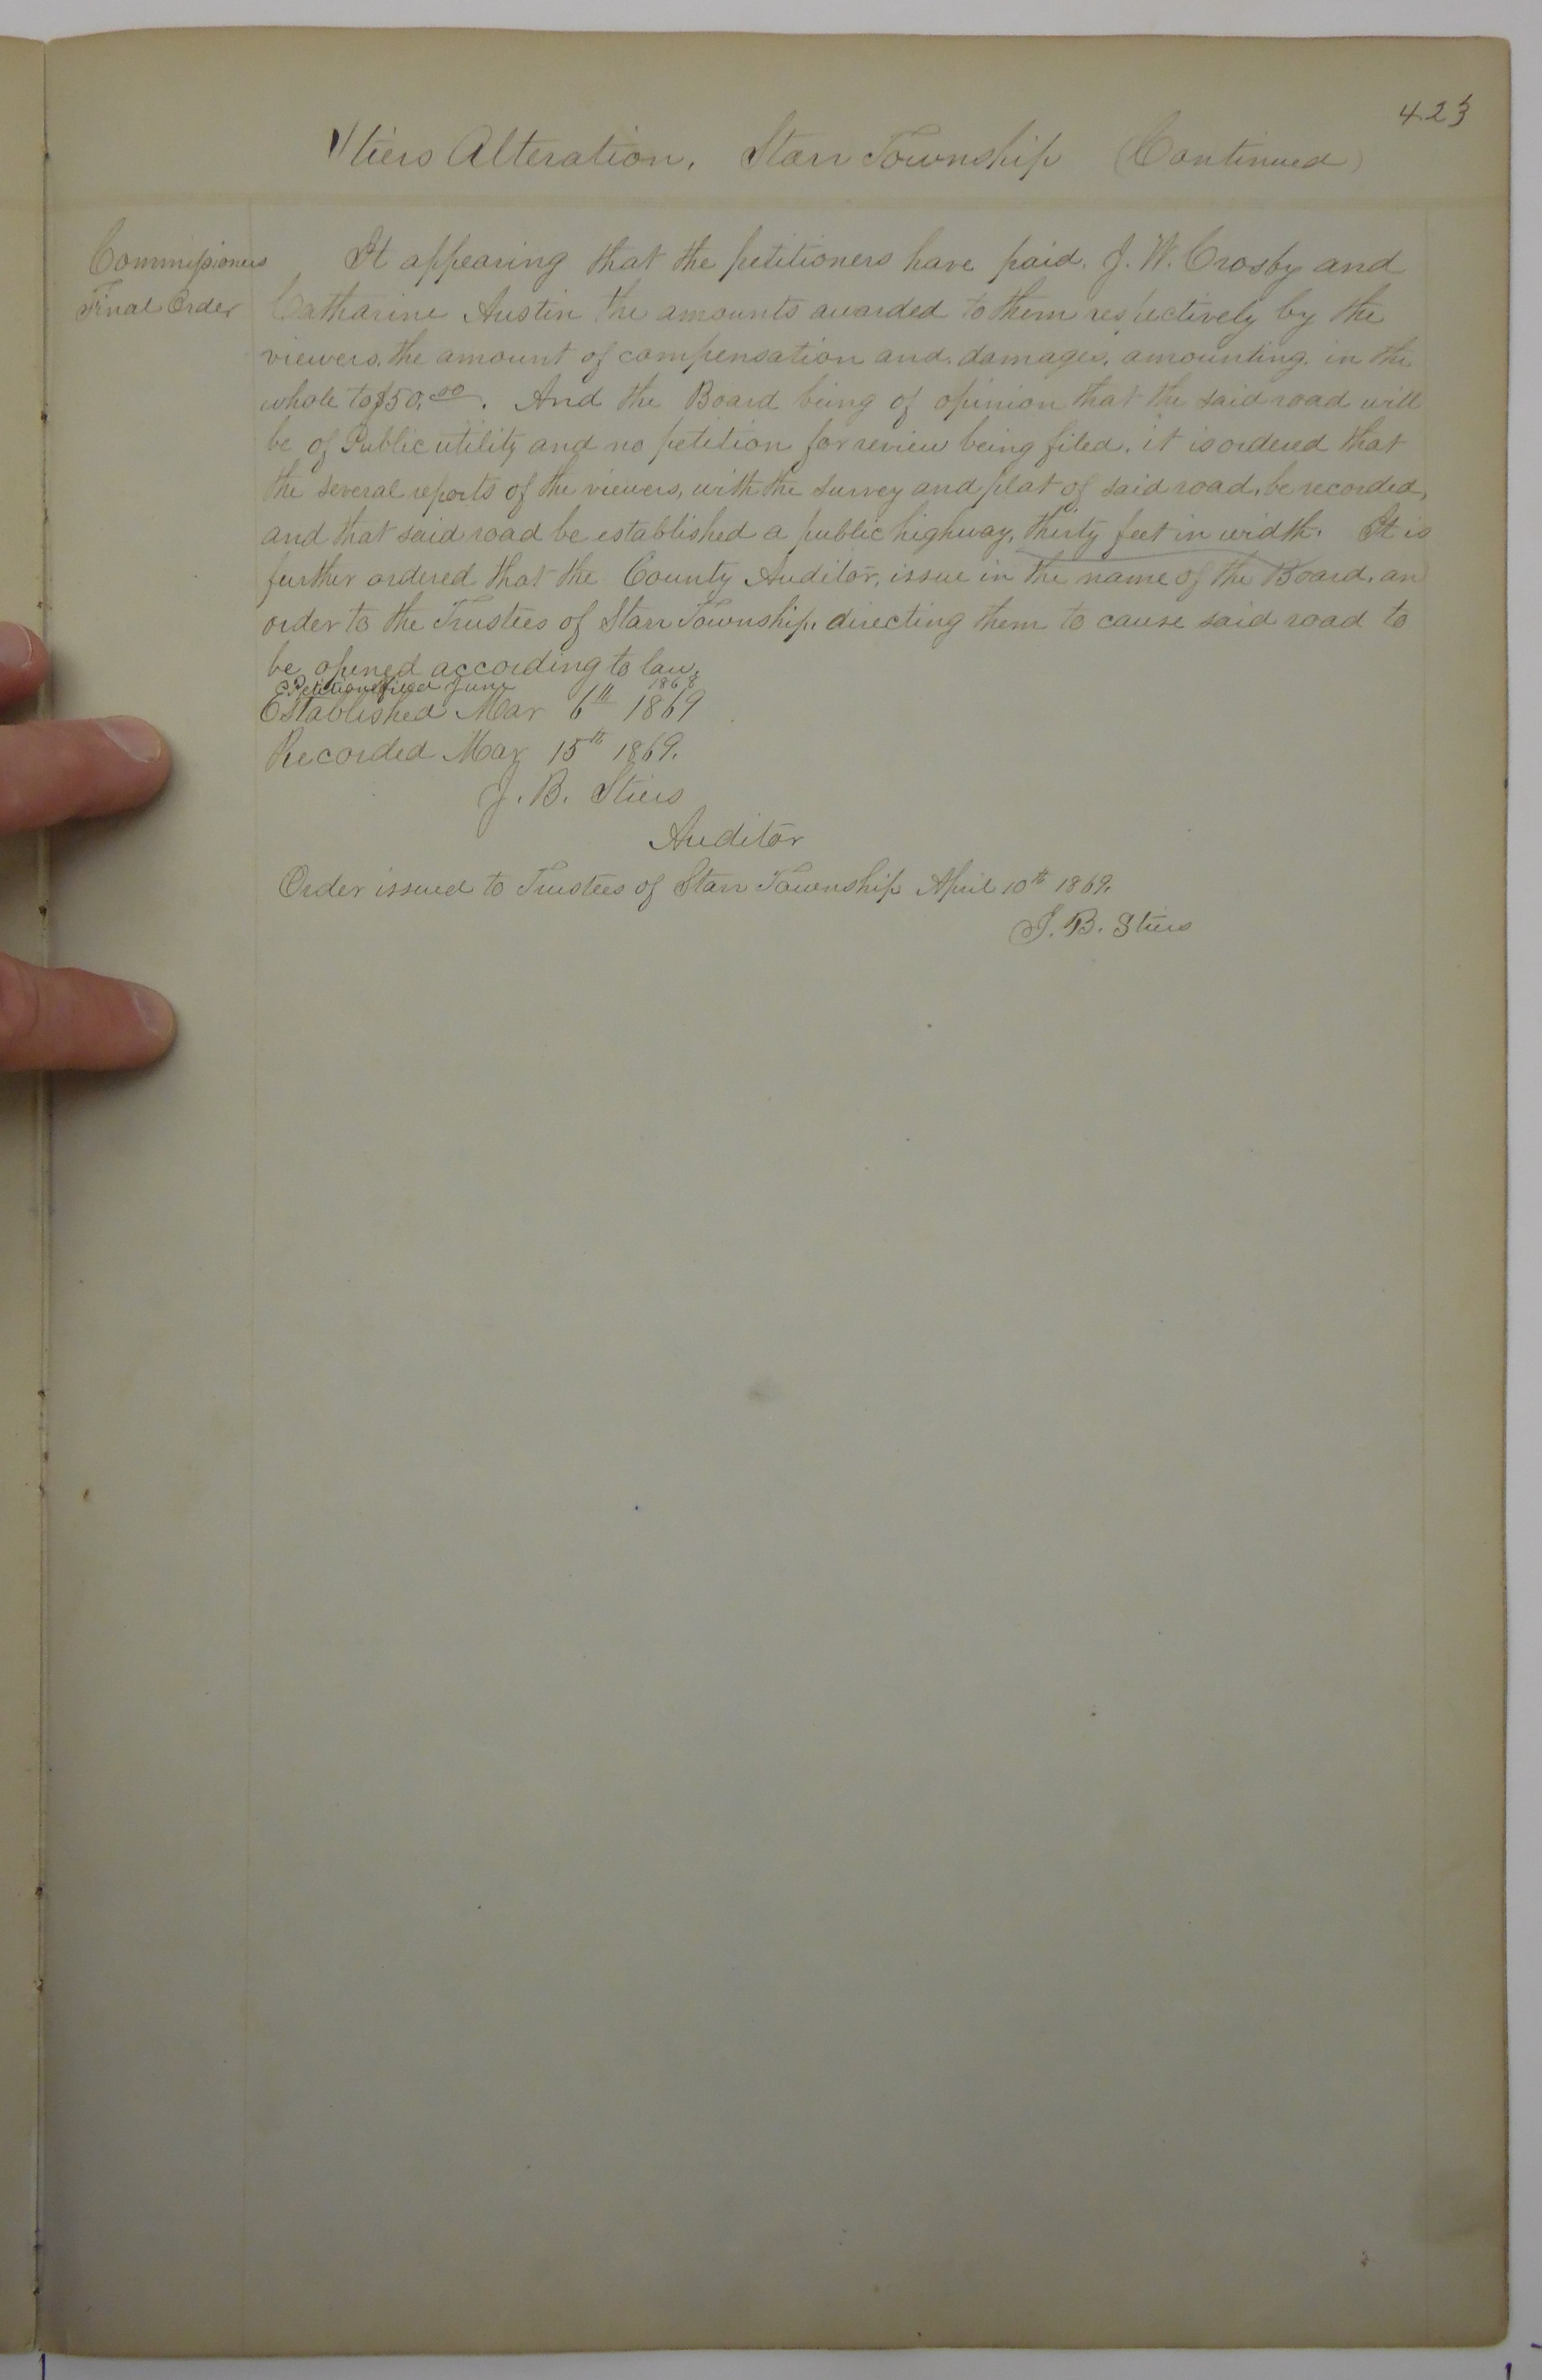 423
Stiers Alteration, Starr Township (Continued)
Commissioners
Final Order
It appearing that the petitioners have paid, J. W. Crosby and
Catharine Austin the amounts awarded to them respectively by the
viewers, the amount of compensation and damages, amounting in the
whole to $50.00. And the Board being of opinion that the said road will
be of Public utility and no petition for review being filed, it is ordered that
the several reports of the viewers, with the survey and plat of said road, be recorded,
and that said road be established a public highway, thirty feet in width. It is
further ordered that the County Auditor, issue in the name of the Board, an
order to the Trustees of Starr Township, directing them to cause said road to
be opened according to law.
Petition filed June 1868
Established Mar 6th 1869
Recorded Mar 15th 1869.
J. B. Stiers
Auditor
Order issued to Trustees of Starr Township April 10th 1869.
J. B. Stiers